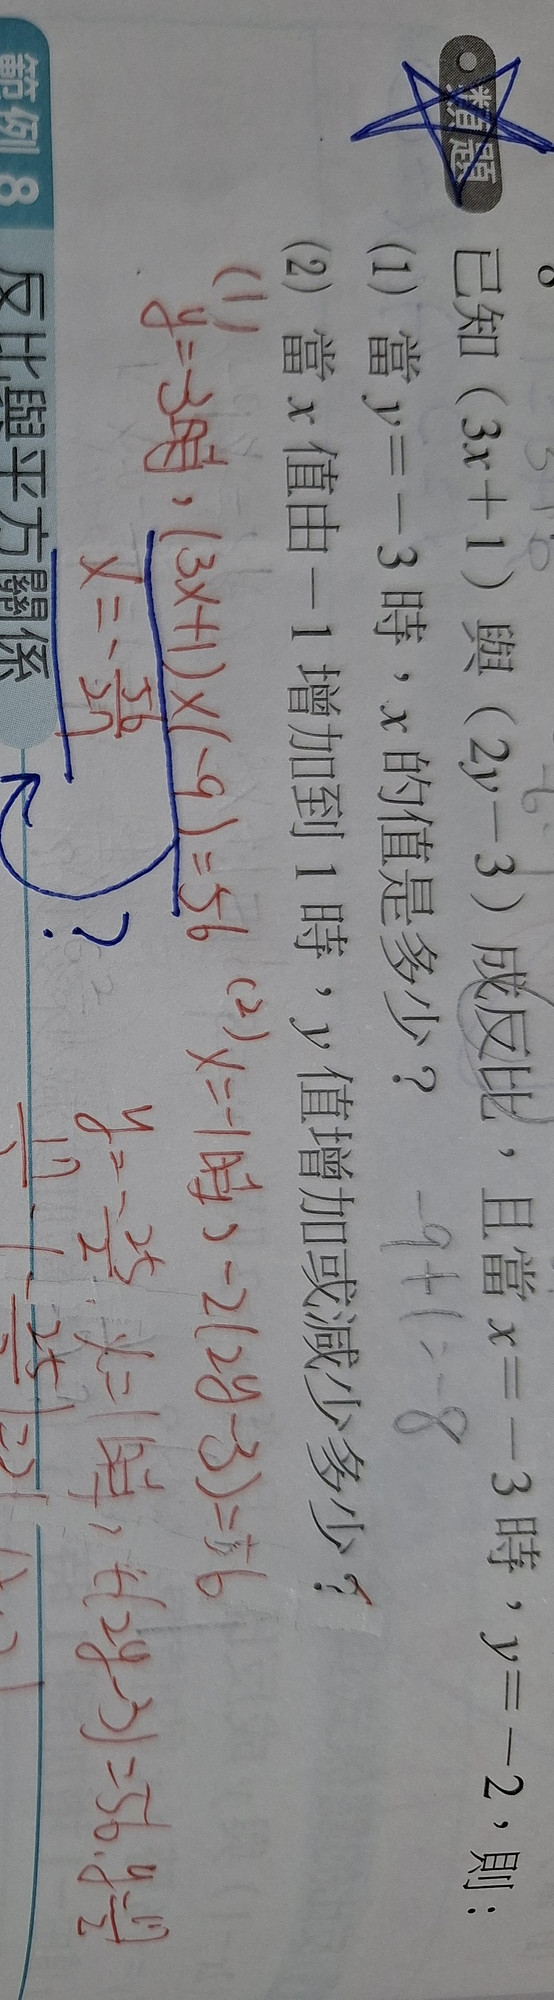 類題
已知（3x＋1）與（2y－3）成反比，且當 x＝－3 時，y＝－2，則：
(1) 當 y＝－3 時，x 的值是多少？
-9+1=-8
(2) 當 x 值由－1 增加到 1 時，y 值增加或減少多少？
(1)
y=-3時，(3x+1)×(-9)=56
x=-
?
(2) x=-1時，-2(2y-3)=56
y=-25/2. x=1時，4(2y-3)=56. y=17/2
17/2-(-25/2)=21
範例 8 反比與平方關係